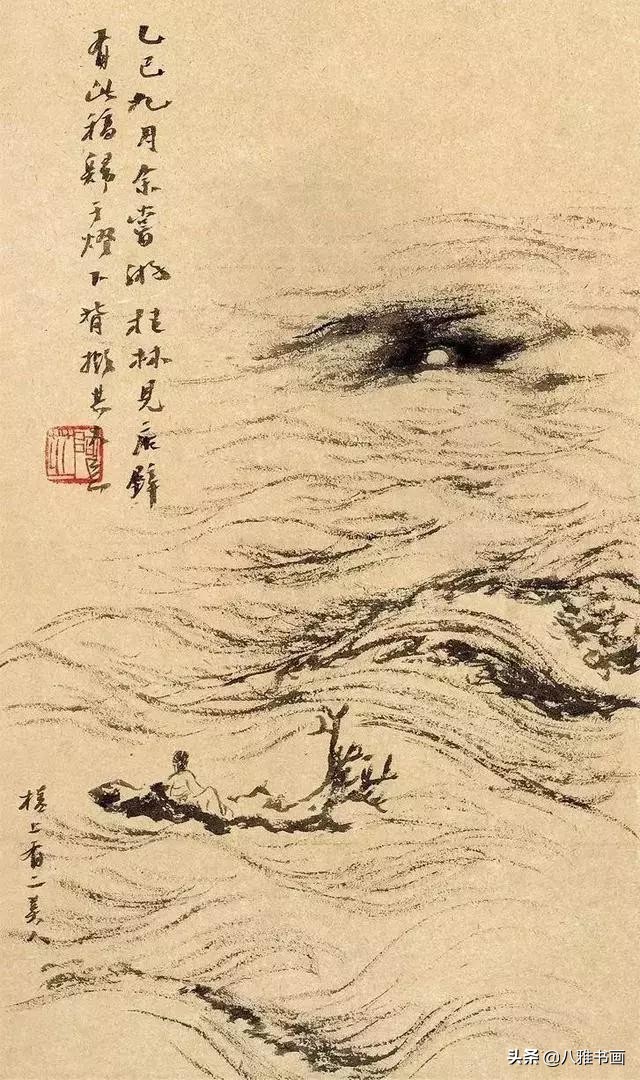 乙巳九月余嘗游桂林見
有此稿歸于燈下背擬其大
槎上有二美人
头条 @八雅书画